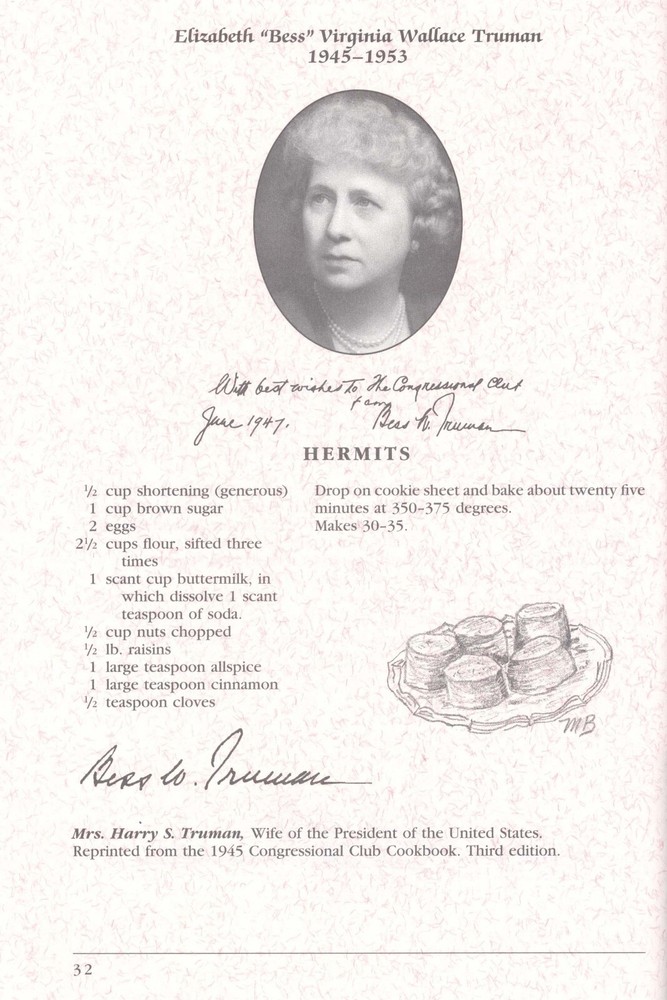 Elizabeth “Bess” Virginia Wallace Truman
1945–1953
With best wishes to The Congressional Club
from
June 1947. Bess W. Truman
HERMITS
½ cup shortening (generous)
1 cup brown sugar
2 eggs
2½ cups flour, sifted three
times
1 scant cup buttermilk, in
which dissolve 1 scant
teaspoon of soda.
½ cup nuts chopped
½ lb. raisins
1 large teaspoon allspice
1 large teaspoon cinnamon
½ teaspoon cloves
Drop on cookie sheet and bake about twenty five
minutes at 350–375 degrees.
Makes 30–35.
MB
Bess W. Truman
Mrs. Harry S. Truman, Wife of the President of the United States.
Reprinted from the 1945 Congressional Club Cookbook. Third edition.
32